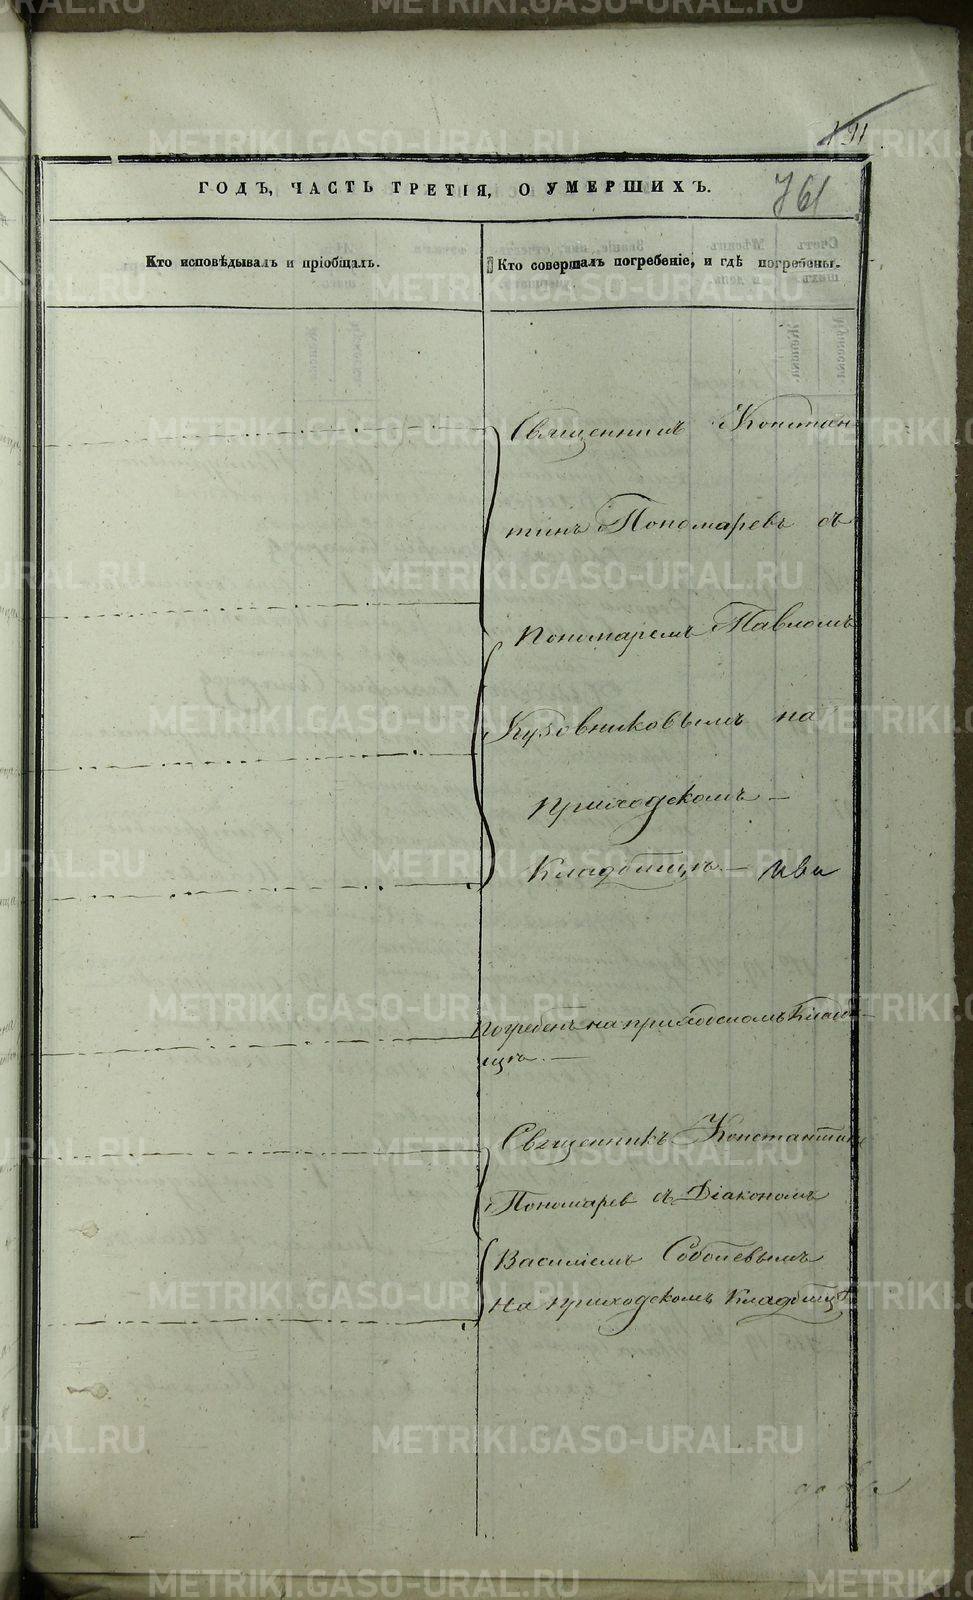 METRIKI.GASO-URAL.RU
191
ГОДЪ, ЧАСТЬ ТРЕТІЯ, О УМЕРШИХЪ.
761
Кто исповѣдывалъ и пріобщалъ.
Кто совершалъ погребеніе, и гдѣ погребены.
Священникъ Констан
тинъ Пономаревъ съ
Пономаремъ Павломъ
Кузовниковымъ на
приходскомъ —
Кладбищѣ. —
Погребенъ на приходскомъ Кладб
ищѣ. —
Священникъ Константинъ
Пономарев съ Діакономъ
Василіемъ Соболевымъ
на приходскомъ Кладбищѣ